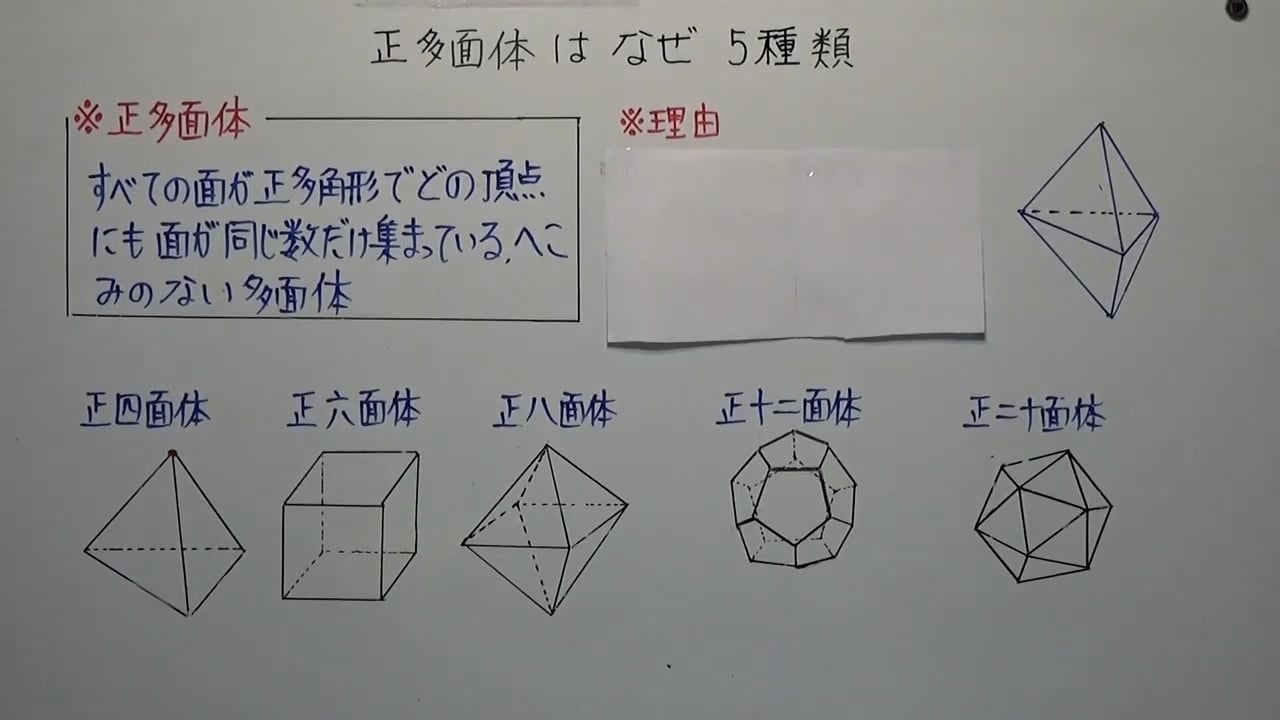 正多面体はなぜ5種類
※正多面体
すべての面が正多角形でどの頂点
にも面が同じ数だけ集まっている、へこ
みのない多面体
※理由
正四面体
正六面体
正八面体
正十二面体
正二十面体